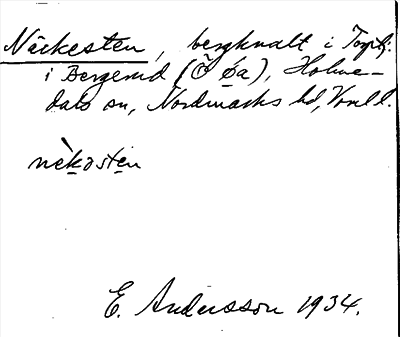 Näckesten, bergknalt i Torp:
i Bergerud (Ö öa), Holme-
dals sn, Nordmarks hd, Vrml.
nèkɔsten
E. Andersson 1934.